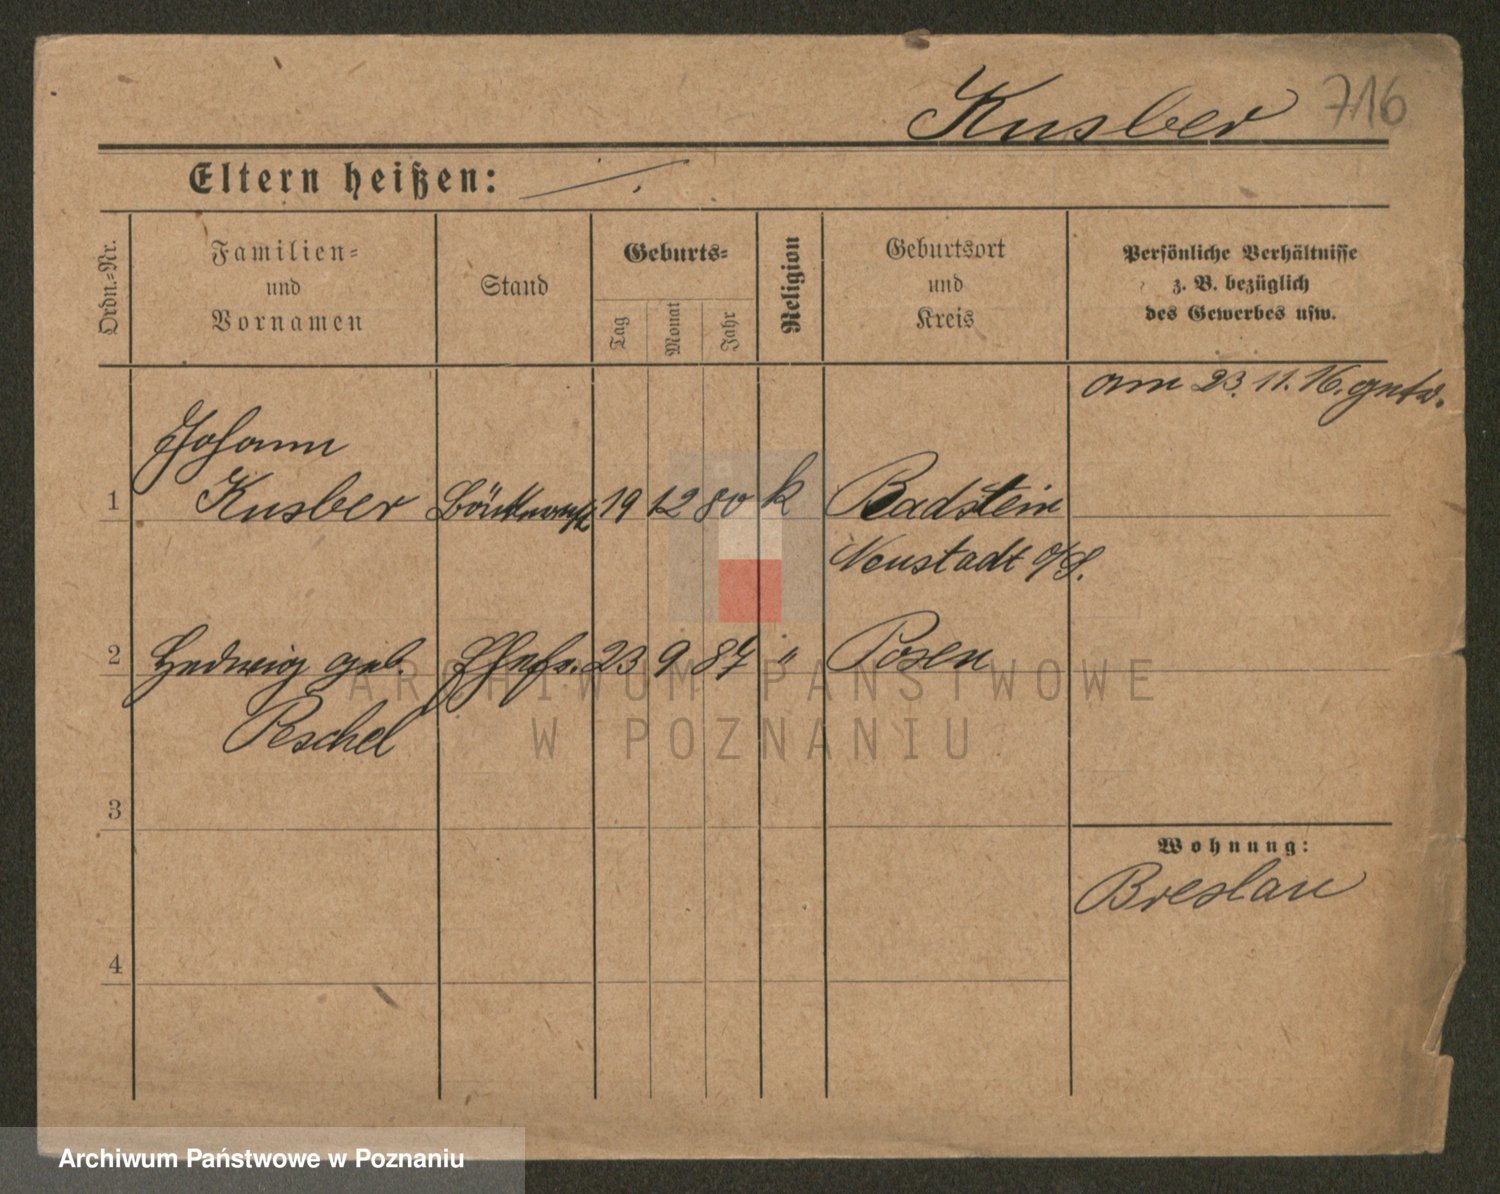 Kusber 716
Eltern heißen: ./.
Ordn.-Nr.
Familien-
und
Vornamen
Stand
Geburts-
Tag
Monat
Jahr
Religion
Geburtsort
und
Kreis
Persönliche Verhältnisse
z. B. bezüglich
des Gewerbes usw.
am 23. 11. 16.
Johann
1 Kusber 19 12 80 k Badstein
Neustadt o/S.
2 Hedwig geb. Ehefr. 23 9 87 " Posen
Peschel
3
Wohnung:
Breslau
4
ARCHIWUM PAŃSTWOWE
W POZNANIU
Archiwum Państwowe w Poznaniu